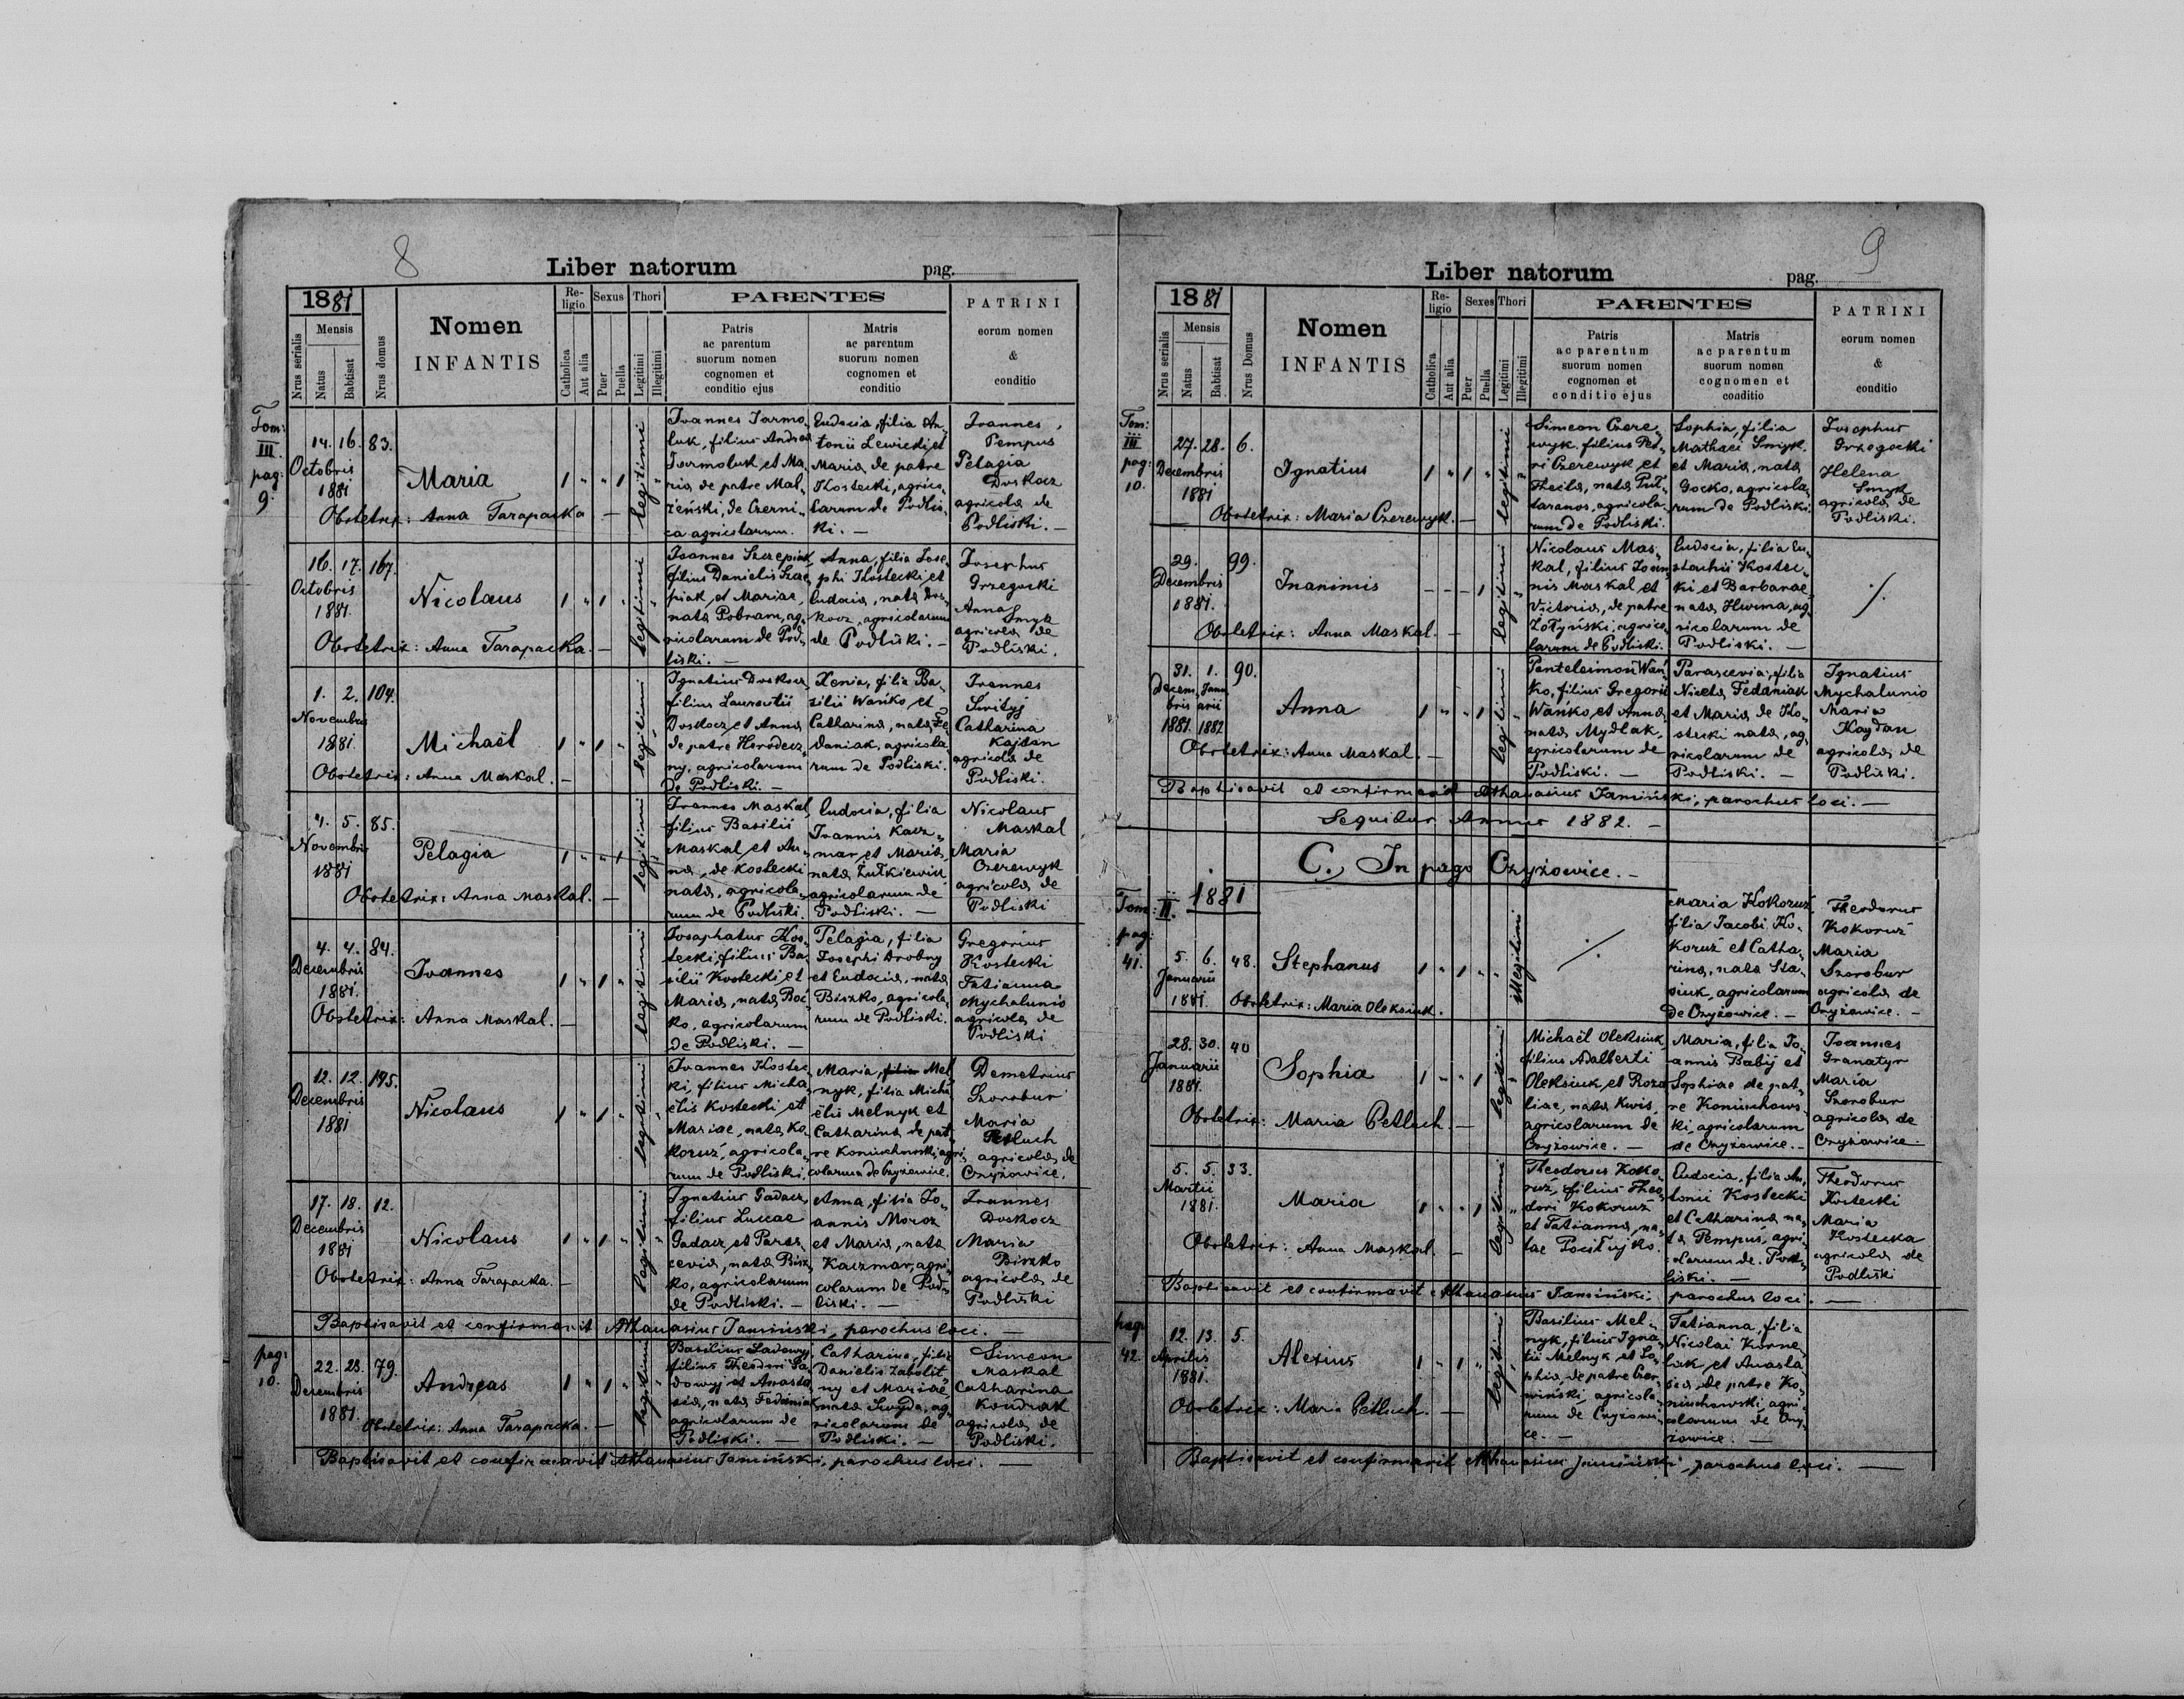 8
Liber natorum pag.
1881
Nrus serialis
Mensis
Natus
Babtisat
Nrus domus
Nomen
INFANTIS
Religio
Catholica
Aut alia
Sexus
Puer
Puella
Thori
Legitimi
Illegitimi
PARENTES
Patris
ac parentum
suorum nomen
cognomen et
conditio ejus
Matris
ac parentum
suorum nomen
cognomen et
conditio
PATRINI
eorum nomen
&
conditio
Tom:
III.
pag:
9.
14. 16. 83.
Octobris
1881
Maria
Obstetrix: Anna Tarapacka —
legitimi
Joannes Jarmo„
luk, filius Andreae
Jarmoluk et Ma„
ria de patre Mal„
żeński, de Czerni„
ca agricolarum.
Eudocia, filia An„
tonii Lewicki et
Maria, de patre
Kostecki, agrico„
larum de Podlis„
ki. —
Joannes
Pempus
Pelagia
Doskocz
agricola de
Podliski. —
16. 17. 167.
Octobris
1881.
Nicolaus
Obstetrix: Anna Tarapacka. —
legitimi
Joannes Szczepiak
filius Danielis Szcze„
piak et Mariae,
nata Pobran, ag„
ricolarum de Pod„
liski. —
Anna, filia Jose„
phi Kostecki et
Eudocia, nata Dos„
kocz, agricolarum
de Podliski. —
Josephus
Grzegocki
Anna
Smyk
agricola de
Podliski.
1. 2. 104.
Novembris
1881.
Michaël
Obstetrix: Anna Maskal. —
legitimi
Ignatius Doskocz,
filius Laurentii
Doskocz et Anna
de patre Herodecz„
ny, agricolarum
de Podliski. —
Xenia, filia Ba„
silii Wańko et
Catharina, nata Fe„
daniak, agricola„
rum de Podliski.
Joannes
Swityj
Catharina
Kajdan
agricola de
Podliski.
4. 5. 85.
Novembris
1881
Pelagia
Obstetrix: Anna Maskal. —
legitimi
Joannes Maskal,
filius Basilii
Maskal et An„
na, de Kostecki
nata, agricola„
rum de Podliski.
Eudocia, filia
Joannis Kacz„
mar et Maria,
nata Żułkiewicz
agricolarum de
Podliski. —
Nicolaus
Maskal
Maria
Czerewyk
agricola de
Podliski
4. 4. 84.
Decembris
1881.
Joannes
Obstetrix: Anna Maskal. —
legitimi
Josaphatus Kos„
tecki, filius Ba„
silii Kostecki et
Maria, nata Boć„
ko, agricolarum
de Podliski. —
Pelagia, filia
Josephi Drobny
et Eudocia, nata
Biszko, agricola„
rum de Podliski.
Gregorius
Kostecki
Tatianna
Mychalunio
agricola de
Podliski
12. 12. 175.
Decembris
1881
Nicolaus
legitimi
Joannes Kostec„
ki, filius Micha„
ëlis Kostecki et
Mariae, nata Ko„
koruź, agricola„
rum de Podliski.
Maria, filia Mel„
nyk, filia Micha„
ëlis Melnyk et
Catharina de pat„
re Koniuchowski, agri„
colarum de Czyżowice.
Demetrius
Szorobur
Maria
Petluch
agricola de
Czyżowice.
17. 18. 12.
Decembris
1881
Nicolaus
Obstetrix: Anna Tarapacka. —
legitimi
Ignatius Gadacz,
filius Luccae
Gadacz et Paras„
cevia, nata Bisz„
ko, agricolarum
de Podliski. —
Anna, filia Jo„
annis Moroz
et Maria, nata
Kaczmar, agri„
colarum de Pod„
liski. —
Joannes
Doskocz
Maria
Biszko
agricola de
Podliski
Baptisavit et confirmavit Athanasius Jamiński, parochus loci. —
pag:
10.
22. 23. 79.
Decembris
1881.
Andreas
Obstetrix: Anna Tarapacka. —
legitimi
Basilius Sadowyj,
filius Theodori Sa„
dowyj et Anasta„
sia, nata Fedaniak
agricolarum de
Podliski. —
Catharina, filia
Danielis Zabolit„
ny et Mariae
nata Swyda, ag„
ricolarum de
Podliski. —
Simeon
Maskal
Catharina
Kondrak
agricola de
Podliski.
Baptisavit et confirmavit Athanasius Jamiński, parochus loci. —
9
Liber natorum pag.
1881
Nrus serialis
Mensis
Natus
Babtisat
Nrus Domus
Nomen
INFANTIS
Religio
Catholica
Aut alia
Sexes
Puer
Puella
Thori
Legitimi
Illegitimi
PARENTES
Patris
ac parentum
suorum nomen
cognomen et
conditio ejus
Matris
ac parentum
suorum nomen
cognomen et
conditio
PATRINI
eorum nomen
&
conditio
Tom:
III
pag:
10.
27. 28. 6.
Decembris
1881
Ignatius
Obstetrix: Maria Czerewyk. —
legitimi
Simeon Czere„
wyk, filius Pet„
ri Czerewyk et
Thecla, nata Puł„
taranos, agricola„
rum de Podliski.
Sophia, filia
Mathaei Smyk
et Maria, nata
Gocko, agricola„
rum de Podliski.
Josephus
Grzegocki
Helena
Smyk
agricola de
Podliski.
29. 99.
Decembris
1881.
Inanimis
Obstetrix: Anna Maskal. —
legitimi
Nicolaus Mas„
kal, filius Joan„
nis Maskal et
Victoria, de patre
Żołyński, agrico„
larum de Podliski.
Eudocia, filia Eu„
stachii Kostec„
ki et Barbarae
nata Huma, ag„
ricolarum de
Podliski. —
./.
31. 1. 90.
Decem„ Janu„
bris arii
1881. 1882
Anna
Obstetrix: Anna Maskal. —
legitimi
Panteleimon Wań„
ko, filius Gregorii
Wańko et Anna,
nata Mydlak,
agricolarum de
Podliski. —
Parascevia, filia
Niceta Fedaniak
et Maria de Ko„
stecki nata, ag„
ricolarum de
Podliski. —
Ignatius
Mychalunio
Maria
Kaydan
agricola de
Podliski.
Baptisavit et confirmavit Athanasius Jamiński, parochus loci. —
Sequitur Annus 1882. —
C., In pago Czyżowice. —
1881
Tom: II.
pag:
41.
5. 6. 48.
Januarii
1881.
Stephanus
Obstetrix: Maria Oleksiuk.
illegitimi
./.
Maria Kokoruź,
filia Jacobi Ko„
koruź et Catha„
rina, nata Sta„
siuk, agricolarum
de Czyżowice. —
Theodorus
Kokoruź
Maria
Szorobur
agricola de
Czyżowice. —
28. 30. 40
Januarii
1881.
Sophia
Obstetrix: Maria Petluch. —
legitimi
Michaël Oleksiuk,
filius Adalberti
Oleksiuk et Roza„
liae, nata Kwis,
agricolarum de
Czyżowice. —
Maria, filia Jo„
annis Babij et
Sophiae de pat„
re Koniuchows„
ki, agricolarum
de Czyżowice. —
Joannes
Granatyr
Maria
Szorobur
agricola de
Czyżowice —
5. 5. 33.
Martii
1881.
Maria
Obstetrix: Anna Maskal. —
legitimi
Theodorus Koko„
ruź, filius Theo„
dori Kokoruź
et Tatianna, na„
tae Pociłujko.
Eudocia, filia An„
tonii Kostecki
et Catharina na„
ta Pempus, agri„
colarum de Pod„
liski. —
Theodorus
Kostecki
Maria
Kostecka
agricola de
Podliski
Baptisavit et confirmavit Athanasius Jamiński, parochus loci. —
pag:
42.
12. 13. 5.
Aprilis
1881.
Alexius
Obstetrix: Maria Petluch. —
legitimi
Basilius Mel„
nyk, filius Igna„
tii Melnyk et So„
phia, de patre Czer„
wiński, agricola„
rum de Czyżowi„
ce. —
Tatianna, filia
Nicolai Korne„
lak et Anasta„
sia, de patre Ko„
niuchowski, agri„
colarum de Czy„
żowice. —
Baptisavit et confirmavit Athanasius Jamiński, parochus loci. —